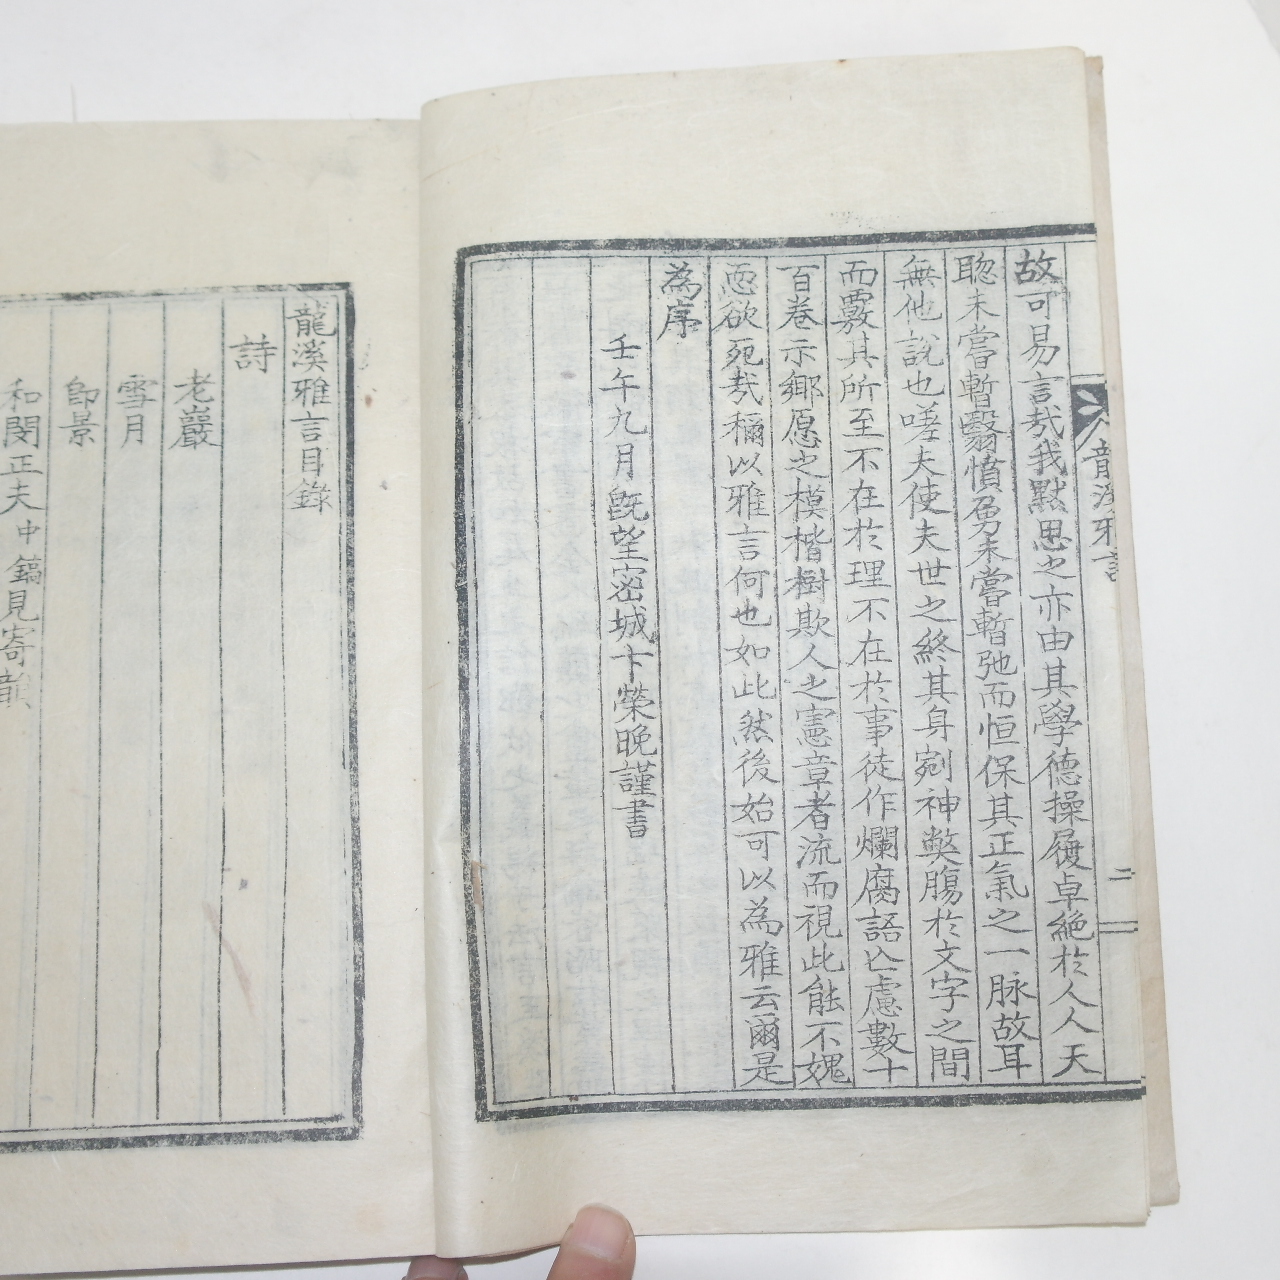 故可易言哉我默思之亦由其學德操履卓絶於人人天
聦未嘗暫翳憤勇未嘗暫弛而恒保其正氣之一脉故耳
無他說也嗟夫使夫世之終其身剜神獘膓於文字之間
而覈其所至不在於理不在於事徒作爛腐語亾慮數十
百卷示鄕愿之模楷樹欺人之憲章者流而視此能不媿
恧欲死哉稱以雅言何也如此然後始可以為雅云爾是
為序
壬午九月旣望密城卞榮晚謹書
龍溪雅言
二
龍溪雅言目錄
詩
老巖
雪月
卽景
和閔正夫中鎬見寄韻